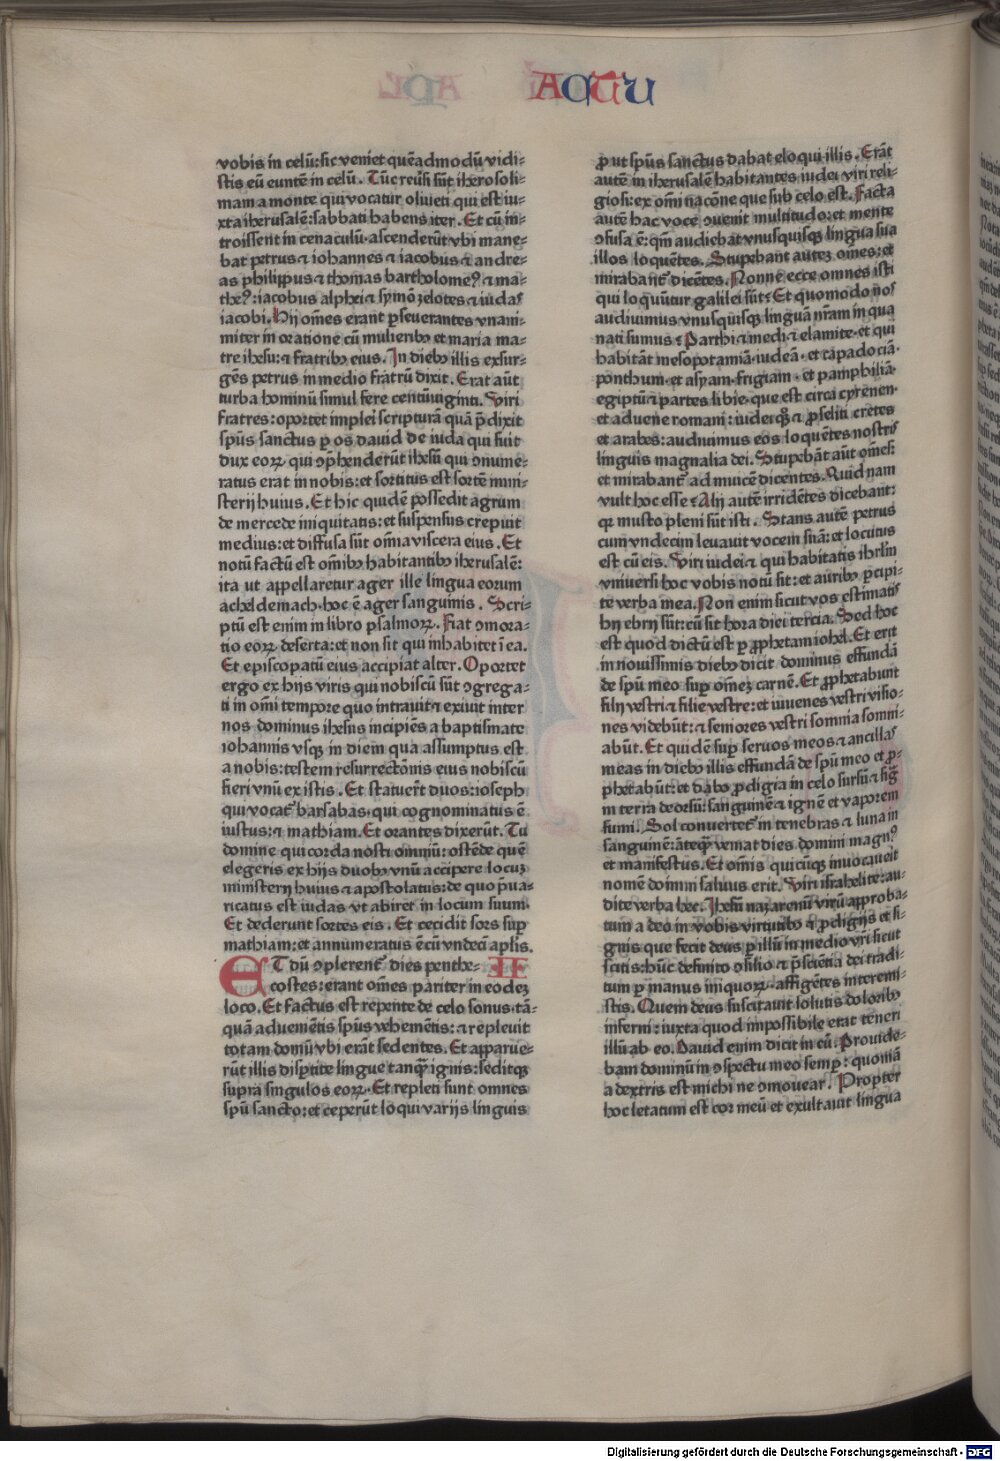 ACTU
vobis in celū: sic veniet quēadmodū vidi⸗
stis eū euntē in celū. Tūc reūsi sūt iherosoli⸗
mam a monte qui vocatur oliueti qui est iu⸗
xta iherusalē: sabbati habens iter. Et cū in⸗
troissent in cenaculū. ascenderūt vbi mane⸗
bat petrus ⁊ iohannes ⁊ iacobus ⁊ andre⸗
as philippus ⁊ thomas bartholomeꝰ ⁊ ma⸗
theꝰ: iacobus alphei ⁊ symō zelotes ⁊ iudas
iacobi. Hij om̄es erant ꝑseuerantes vnani⸗
miter in oratione cū mulieribꝫ et maria ma⸗
tre ihesu: ⁊ fratribꝫ eius. In diebꝫ illis exsur⸗
gēs petrus in medio fratrū dixit. Erat aūt
turba hominū simul fere centūviginti. Viri
fratres: oportet impleri scripturā quā p̄dixit
spūs sanctus ꝑ os dauid de iuda qui fuit
dux eoꝝ. qui ꝯp̄henderūt ihesū qui ꝯnume⸗
ratus erat in nobis: et sortitus est sortē mini⸗
sterij huius. Et hic quidē possedit agrum
de mercede iniquitatis: et suspensus crepuit
medius: et diffusa sūt om̄ia viscera eius. Et
notū factū est om̄ibꝫ habitantibꝫ iherusalē:
ita ut appellaretur ager ille lingua eorum
acheldemach. hoc ē ager sanguinis. Scri⸗
ptū est enim in libro psalmoꝝ. Fiat ꝯmora⸗
tio eoꝝ deserta: et non sit qui inhabitet ī ea.
Et episcopatū eius accipiat alter. Oportet
ergo ex hijs viris qui nobiscū sūt ꝯgrega⸗
ti in om̄i tempore quo intrauit ⁊ exiuit inter
nos dominus ihesus incipiēs a baptismate
iohannis vsqꝫ in diem qua assumptus est
a nobis: testem resurrectōnis eius nobiscū
fieri vnū ex istis. Et statuer̄t duos: ioseph
qui vocat᷑ barsabas. qui cognominatus ē
iustus: ⁊ mathiam. Et orantes dixerūt. Tu
domine qui corda nosti omniū: ostēde quē
elegeris ex hijs duobꝫ vnū accipere locuꝫ
ministerij huius ⁊ apostolatus: de quo p̄ua⸗
ricatus est iudas vt abiret in locum suum.
Et dederunt sortes eis. Et cecidit sors suꝑ
mathiam: et annumeratus ē cū vndecī aplis.
ET dū ꝯplerent᷑ dies penthe⸗ II
costes: erant om̄es pariter in eodeꝫ
loco. Et factus est repente de celo sonus. tā⸗
quā aduenientis spūs vehemētis: ⁊ repleuit
totam domū vbi erāt sedentes. Et apparue⸗
rūt illis disꝑtite lingue tanqꝫ ignis: seditqꝫ
supra singulos eoꝝ. Et repleti sunt omnes
spū sancto: et ceperūt loqui varijs linguis
ꝓut spūs sanctus dabat eloqui illis. Erāt
autē in iherusalē habitantes iudei viri reli⸗
giosi: ex om̄i nacōne que sub celo est. Facta
autē hac voce ꝯuenit multitudo: et mente
ꝯfusa ē: qm̄ audiebat vnusquisqꝫ lingua sua
illos loquētes. Stupebant auteꝫ om̄es: et
mirabant᷑ dicētes. Nonne ecce omnes isti
qui loquūtur galilei sūt? Et quomodo nos
audiuimus vnusquisqꝫ linguā nr̄am in qua
nati sumus? Parthi ⁊ medi ⁊ elamite. et qui
habitāt mesopotamiā iudeā. et capadociā.
ponthum. et asyam. frigiam. et pamphiliā
egiptū ⁊ partes libie. que est circa cyrenen.
et aduene romani: iudei qꝫ ⁊ ꝓseliti cretes
et arabes: audiuimus eos loquētes nostris
linguis magnalia dei. Stupebāt aūt om̄es:
et mirabant᷑ ad inuicē dicentes. Quid nam
vult hoc esse? Alij autē irridētes dicebant:
qꝛ musto pleni sūt isti. Stans autē petrus
cum vndecim leuauit vocem suā: et locutus
est cū eis. Viri iudei ⁊ qui habitatis ihrl̄m
vniuersi hoc vobis notū sit: et auribꝫ ꝑcipi⸗
te verba mea. Non enim sicut vos estimatis
hij ebrij sūt: cū sit hora diei tercia. Sed hoc
est quod dictū est ꝑ ꝓphetam iohel. Et erit
in nouissimis diebꝫ dicit dominus effundā
de spū meo suꝑ om̄eꝫ carnē. Et ꝓphetabunt
filij vestri ⁊ filie vestre: et iuuenes vestri visio⸗
nes videbūt: ⁊ seniores vestri somnia somni⸗
abūt. Et quidē suꝑ seruos meos ⁊ ancillas
meas in diebꝫ illis effundā de spū meo et ꝓ⸗
phetabūt: et dabo ꝓdigia in celo sursū ⁊ siḡ
in terra deorsū: sanguinē ⁊ ignē et vaporem
fumi. Sol conuertet᷑ in tenebras ⁊ luna in
sanguinē: ātequā veniat dies domini magnꝰ
et manifestus. Et om̄is quicūqꝫ inuocauerit
nomē domini saluus erit. Viri israhelite: au⸗
dite verba hec. Ihesū nazarenū virū approba⸗
tum a deo in vobis virtutibꝫ ⁊ ꝓdigijs et si⸗
gnis que fecit deus ꝑ illū in medio vr̄i sicut
scitis: hūc definito ꝯsilio ⁊ p̄sciētia dei tradi⸗
tum ꝑ manus iniquoꝝ. affigētes interemi⸗
stis. Quem deus suscitauit solutis doloribꝫ
inferni: iuxta quod impossibile erat teneri
illū ab eo. Dauid enim dicit in eū. Prouide⸗
bam dominū in ꝯspectu meo semꝑ: quoniā
a dextris est michi ne ꝯmouear. Propter
hoc letatum est cor meū et exultauit lingua
Digitalisierung gefördert durch die Deutsche Forschungsgemeinschaft - DFG